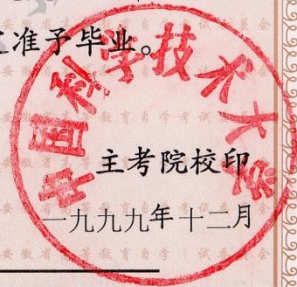 准予毕业。
中国科学技术大学
主考院校印
一九九九年十二月